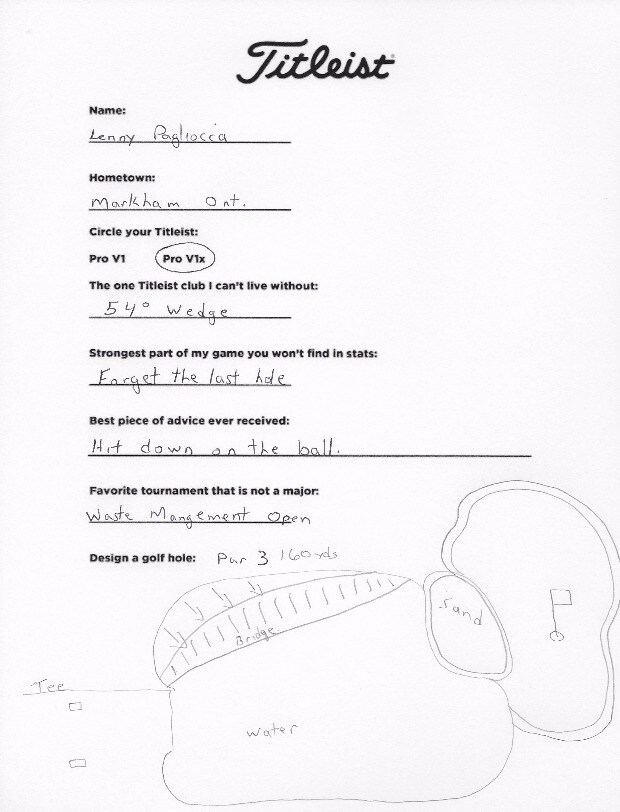 Titleist
Name:
Lenny Pagliocca
Hometown:
Markham Ont.
Circle your Titleist:
Pro V1 Pro V1x
The one Titleist club I can't live without:
54° Wedge
Strongest part of my game you won't find in stats:
Forget the last hole
Best piece of advice ever received:
Hit down on the ball.
Favorite tournament that is not a major:
Waste Mangement Open
Design a golf hole: Par 3 160yds
Sand
Bridge
Tee
Water